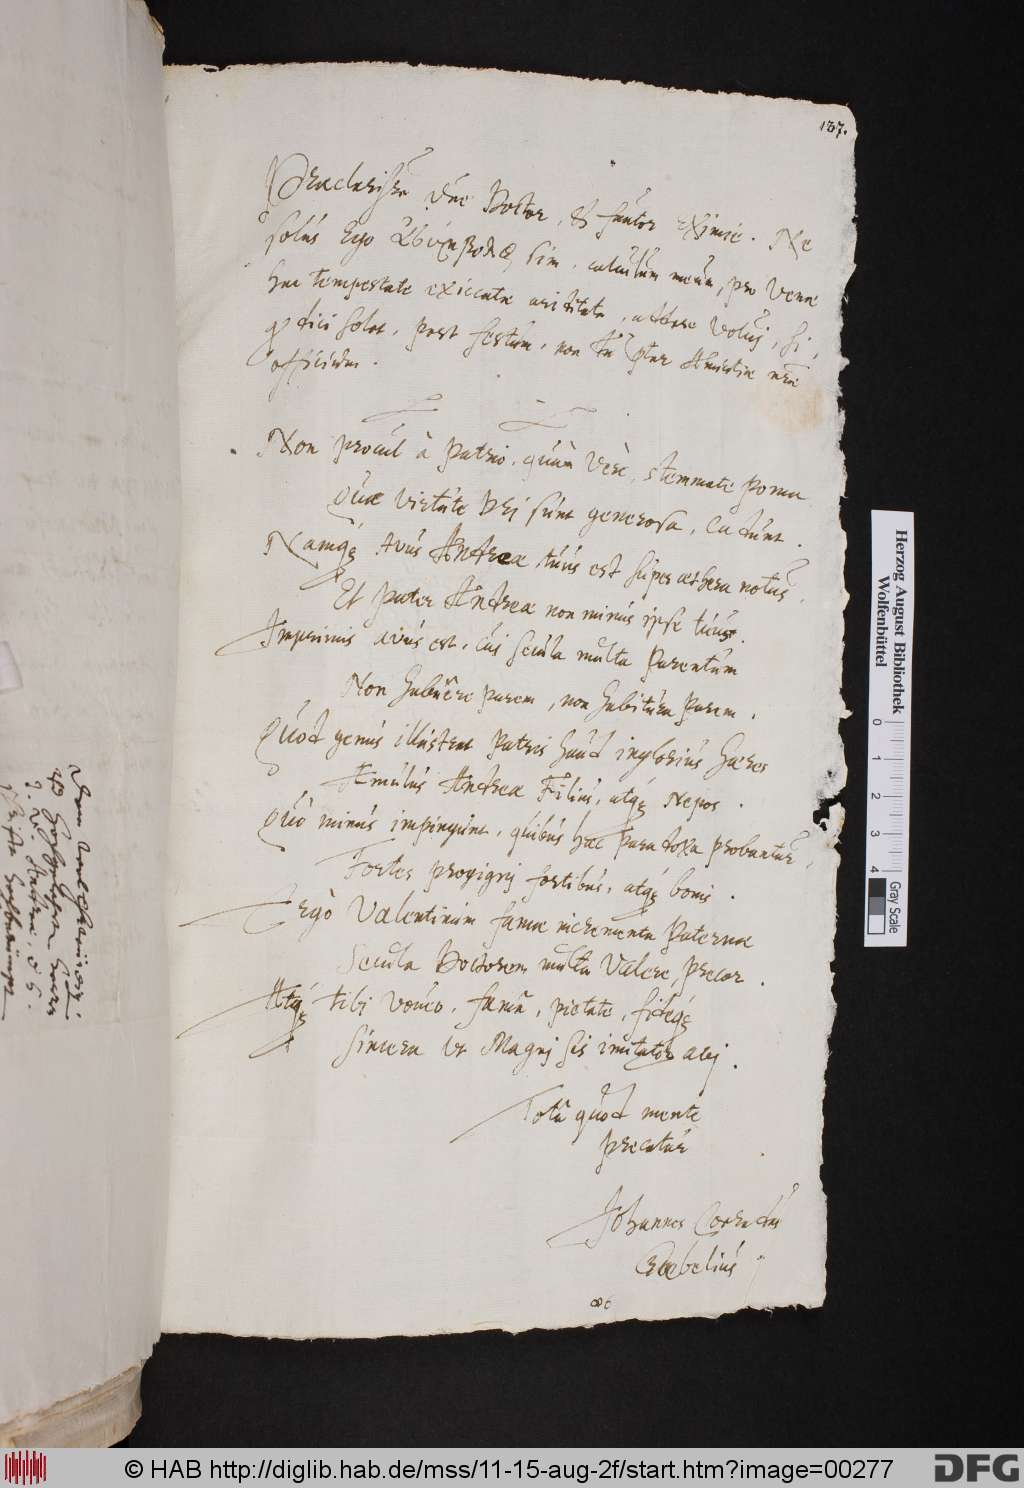 137.
Praeclarissè dne Doctor, & fautor eximie. Ne
solus Ego sim, calculum meum, pro venae
hac tempestate exiccatae ariditate, addere volui, si,
qd dici solet, post festum, non tn pter Amicitiae nrae
officium.
Non procul à patrio, quàm verè, stemmate poma
Quae virtute Dej sunt generosa, cadunt.
Namq Avus Andrea tuus est super aethera notus,
Et pater Andrea non minus ipse tuus.
Imprimis avus est, cui secula multa parentum
Non habuêre parem, non habitura parem.
Quod genus illustrat patris haud inglorius haeres
Aemulus Andreae Filius, atq Nepos.
Quò minus impingunt, quibus haec paradoxa probantur,
Fortes progignj fortibus, atq bonis.
Ergò Valentinum famae incrementa paternae
Secula Doctorem multa valere, precor.
Atq tibj voveo, famâ, pietate, fideq
Sincera ut Magnj sis imitator avj.
Totâ quod mente
precatur
Johannes Conradus
Herzog August Bibliothek
Wolfenbüttel
0 1 2 3 4
Gray Scale
© HAB http://diglib.hab.de/mss/11-15-aug-2f/start.htm?image=00277
DFG